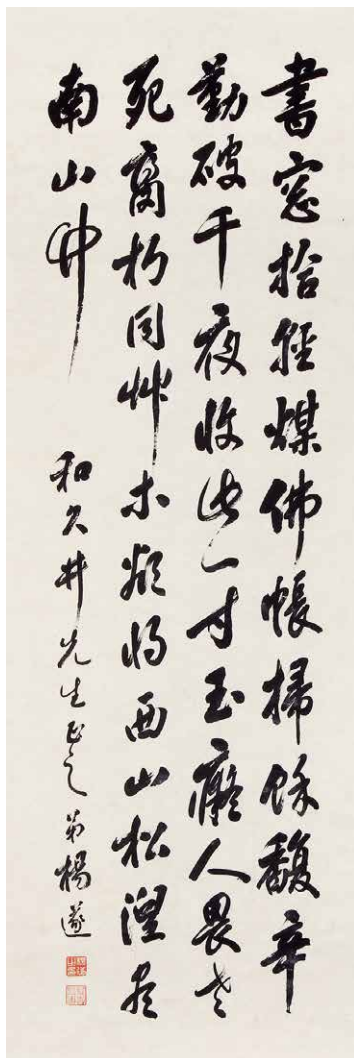 書窓拾輕煤佛帳掃餘馥辛
勤破千夜收此一寸玉癡人畏老
死腐朽同艸木欲將西山松涅盡
南山竹
和久井先生正之 弟楊